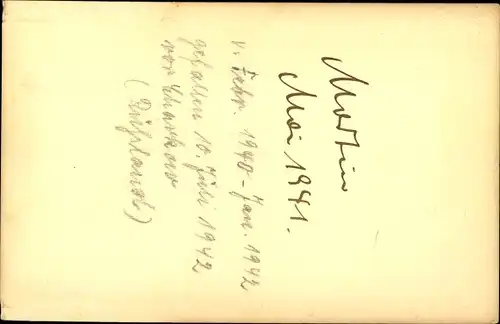 Martin
Mai 1941.
v. Febr. 1940 - Jan. 1942
gefallen 10. Juli 1942
vor Charkow
(Rußland)